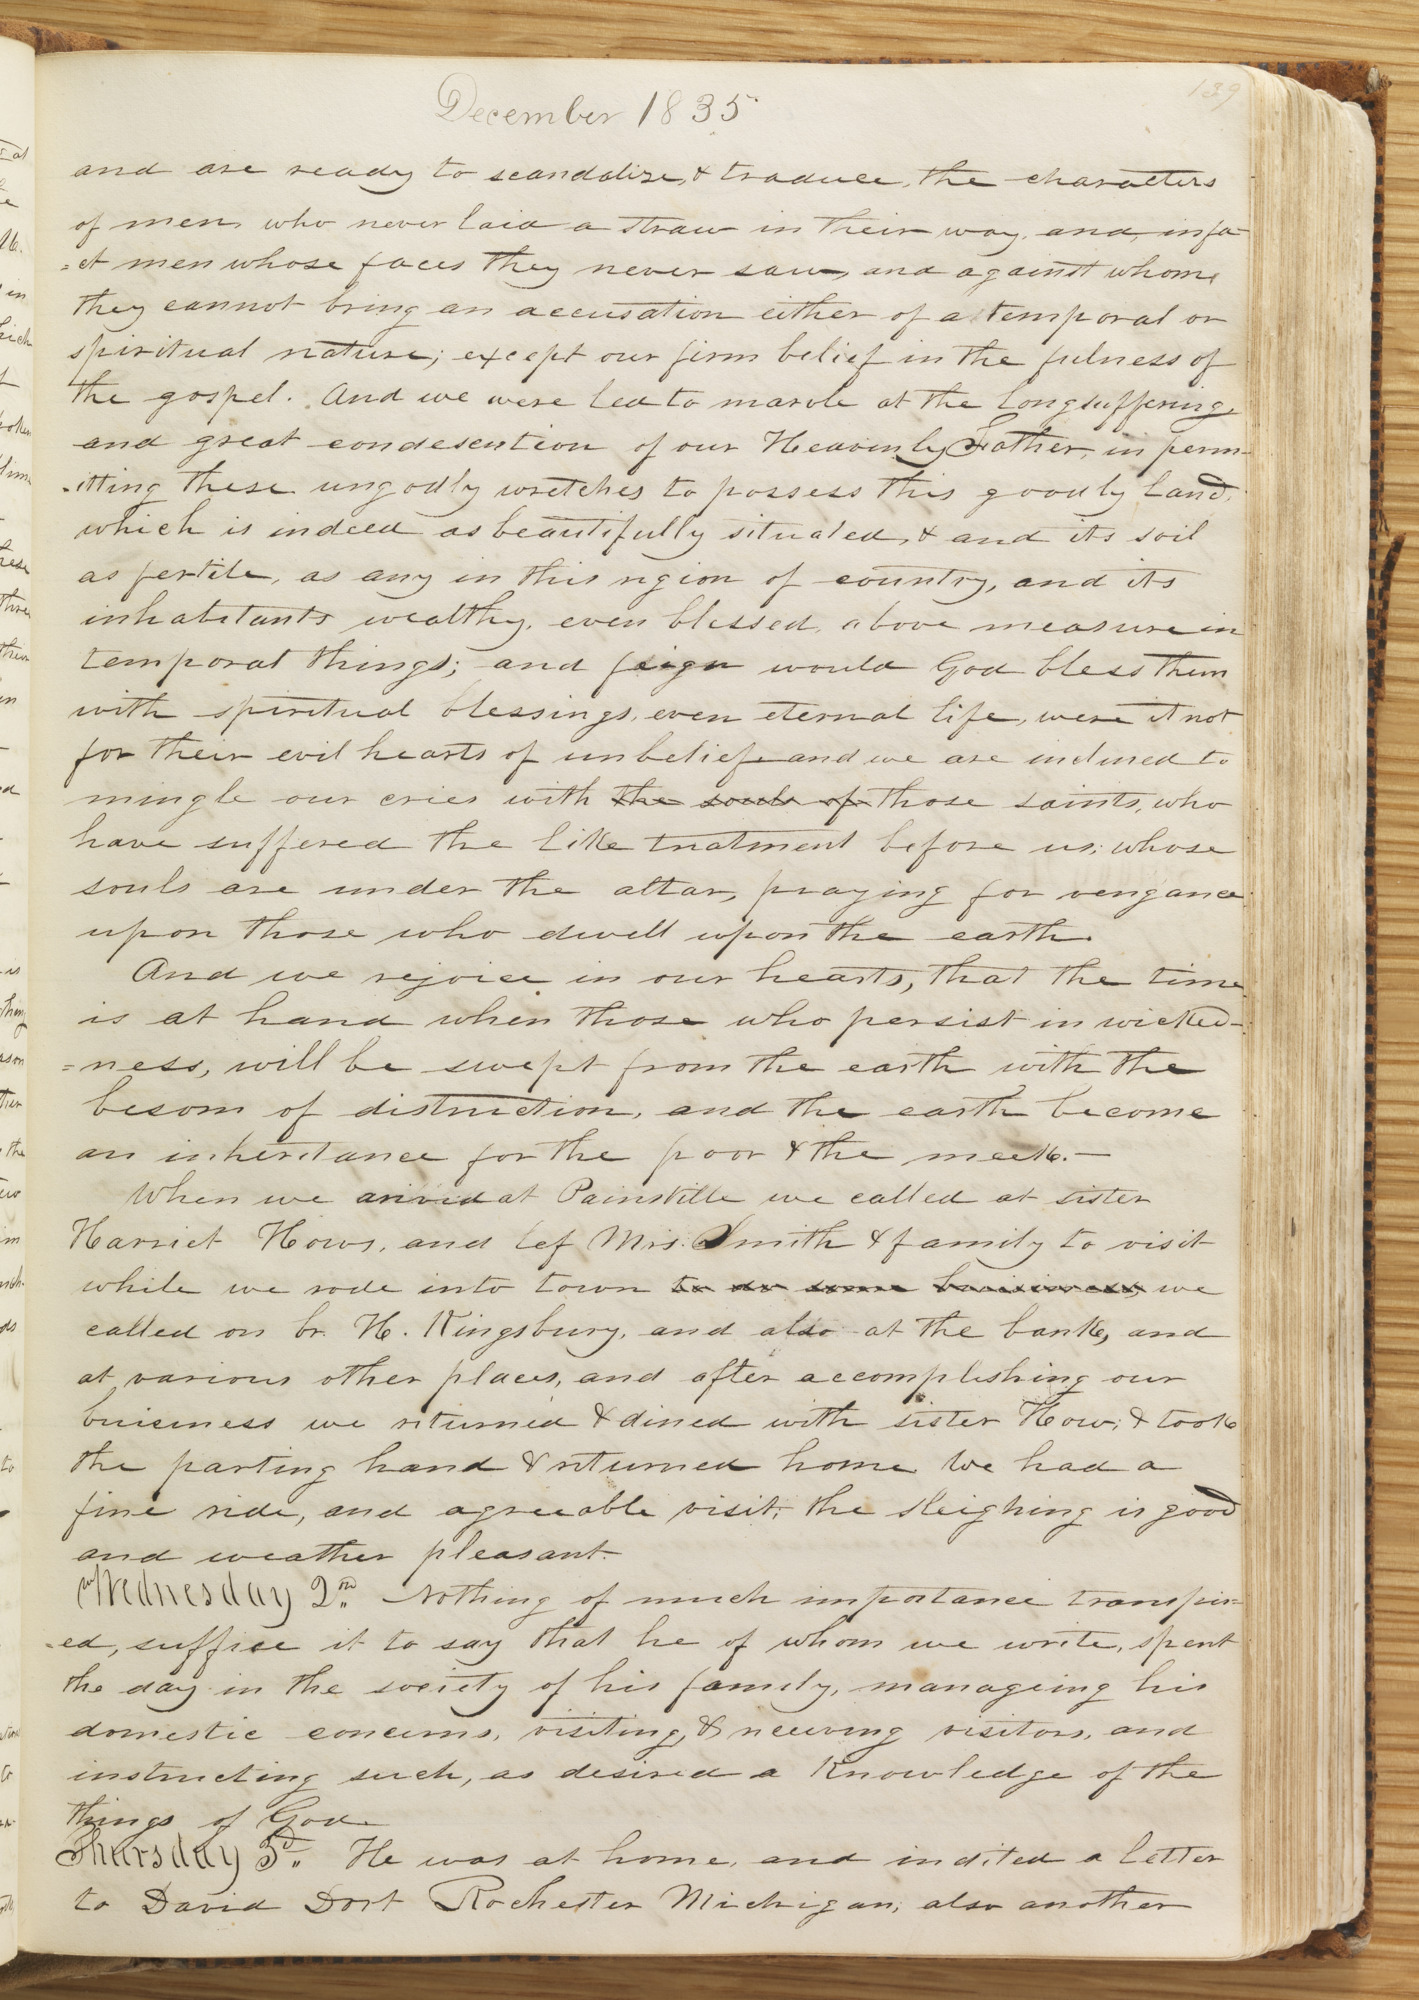 December 1835
139
and are ready to scandalize, & traduce, the characters
of men who never laid a straw in their way, and, infa-
=ct men whose faces they never saw, and against whom,
they cannot bring an accusation either of a temporal or
spiritual nature; except our firm belief in the fulness of
the gospel. And we were led to marvle at the longsuffering,
and great condescention of our Heavenly Father, in perm-
-itting these ungodly wretches to possess this goodly land,
which is indeed as beautifully situated, & and its soil
as fertile, as any in this region of country, and its
inhabitants wealthy, even blessed, above measure in
temporal things; and feign would God bless them
with spiritual blessings, even eternal life, were it not
for their evil hearts of unbelief and we are inclined to
mingle our cries with the souls of those saints, who
have suffered the like treatment before us, whose
souls are under the altar, praying for vengance
upon those who dwell upon the earth.
And we rejoice in our hearts, that the time
is at hand when those who persist in wicked-
=ness, will be swept from the earth with the
besom of distruction, and the earth become
an inheritance for the poor & the meek.—
When we arived at Painsville we called at sister
Harriet Hows, and lef Mrs. Smith & family to visit
while we rode into town to do some buisiness, we
called on br. H. Kingsbury, and also at the bank, and
at various other places, and after accomplishing our
buisiness we returned & dined with sister How; & took
the parting hand & returned home. We had a
fine ride, and agreeable visit; the sleighing is good
and weather pleasant.
Wednesday 2nd. Nothing of much importance transpir-
-ed, suffice it to say that he of whom we write, spent
the day in the society of his family, manageing his
domestic concerns, visiting, & receiving visitors, and
instructing such, as desired a knowledge of the
things of God.
Thursday 3d. He was at home, and indited a letter
to David Dort Rochester Michigan, also another